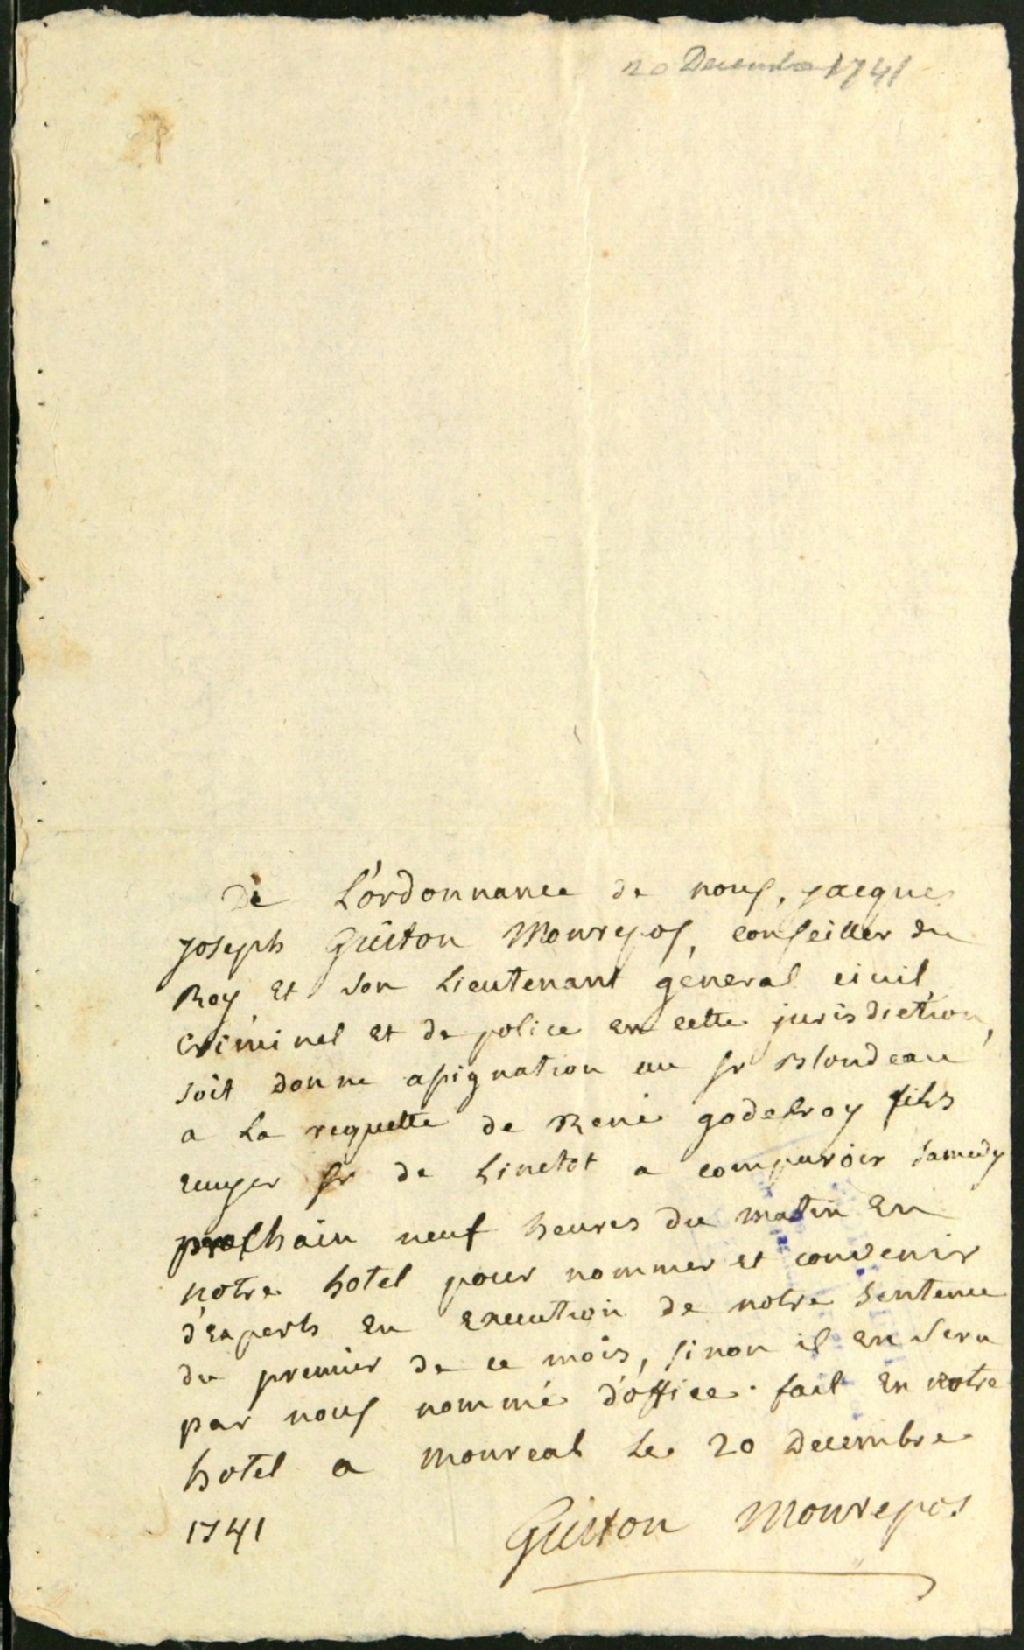 20 Decembre 1741
De L'ordonnance de nous, jacques
joseph Guiton Monrepos, conseiller du
Roy et son Lieutenant géneral civil,
Criminel et de police en cette jurisdiction,
soit donné assignation au sr Blondeau
a La requette de René godefroy fils
ecuyer sr de Linctot a comparoir samedy
prochain neuf heures du matin en
notre hotel pour nommer et convenir
d'experts en execution de notre sentence
du premier de ce mois, sinon il en sera
par nous nommé d'office. fait en notre
hotel a Monreal Le 20 decembre
1741
Guiton Monrepos